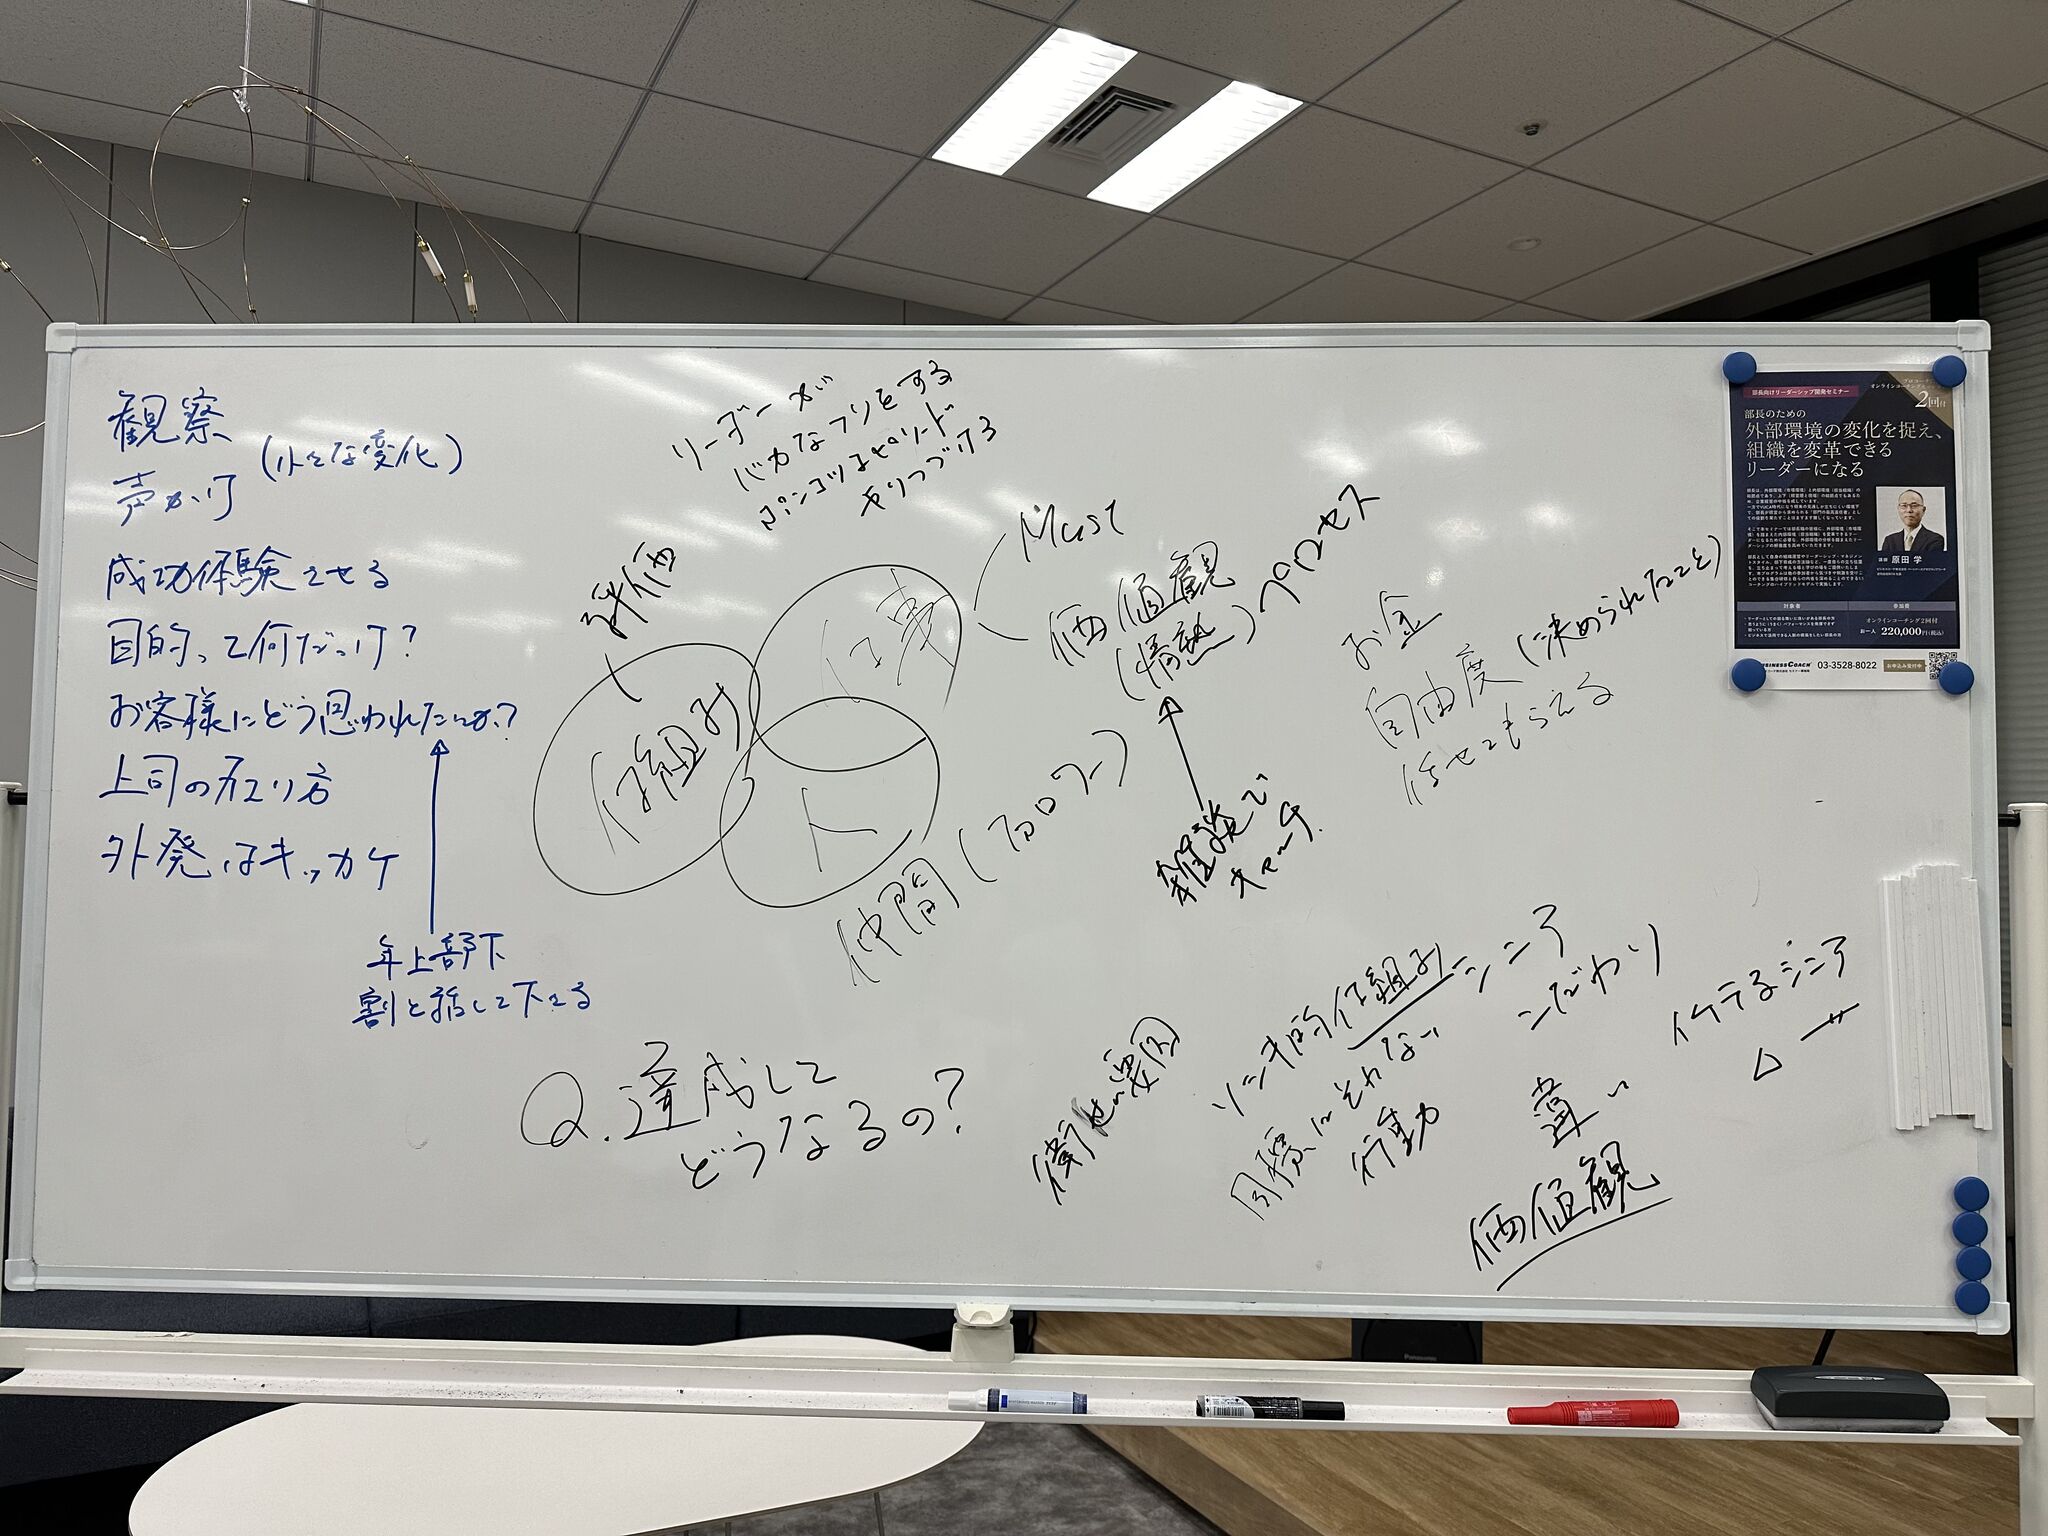 観察
声かけ
(小さな変化)
成功体験させる
目的って何だっけ？
お客様にどう思われたいか？
上司の在り方
外発はキッカケ
年上部下
割と話して下さる
リーダーが
バカなフリをする
ポンコツエピソード
やりつづける
評価
仕組み
仕事
人
仲間(フォロワー)
Must
価値観
(情熱)
プロセス
雑談で
キャッチ
お金
自由度(決められたこと)
任せてもらえる
Q.達成して
どうなるの？
衛生要因
ソシキ的仕組み
目標にそわない
行動
シニア
こだわり
違い
価値観
イケてるシニア
部長向けリーダーシップ開発セミナー
2回付
部長のための
外部環境の変化を捉え、
組織を変革できる
リーダーになる
講師 原田 学
対象者
参加費
オンラインコーチング2回付
お一人 220,000円(税込)
BUSINESS COACH
03-3528-8022
お申込み受付中
Panasonic